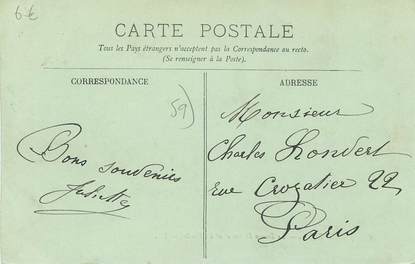 6€
CARTE POSTALE
Tous les Pays étrangers n'acceptent pas la Correspondance au recto.
(Se renseigner à la Poste).
CORRESPONDANCE
ADRESSE
59)
Bons souvenirs
Juliette
Monsieur
Charles
rue Crozatier 22
Paris